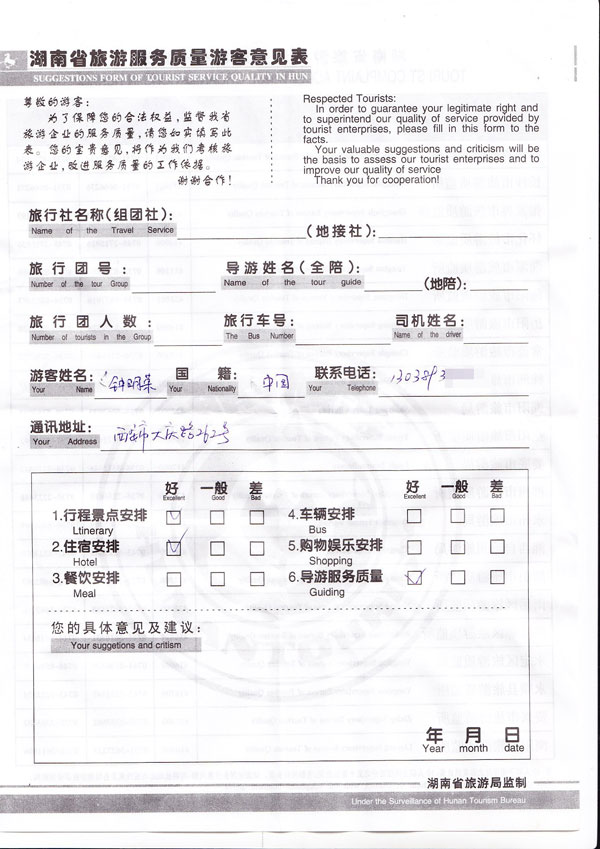 湖南省旅游服务质量游客意见表
SUGGESTIONS FORM OF TOURIST SERVICE QUALITY IN HUN
尊敬的游客：
为了保障您的合法权益，监督我省
旅游企业的服务质量，请您如实填写此
表。您的宝贵意见，将作为我们考核旅
游企业，改进服务质量的工作依据。
谢谢合作！
Respected Tourists:
In order to guarantee your legitimate right and
to superintend our quality of service provided by
tourist enterprises, please fill in this form to the
facts.
Your valuable suggestions and criticism will be
the basis to assess our tourist enterprises and to
improve our quality of service
Thank you for cooperation!
旅行社名称(组团社)： (地接社)：
Name of the Travel Service
旅行团号： 导游姓名(全陪)： (地陪)：
Number of the tour Group Name of the tour guide
旅行团人数： 旅行车号： 司机姓名：
Number of tourists in the Group The Bus Number Name of the driver
游客姓名： 钟明荣 国籍： 中国 联系电话： 1303893
Your Name Your Nationality Your Telephone
通讯地址： 西安市大庆路262号
Your Address
好 一般 差 好 一般 差
Excellent Good Bad Excellent Good Bad
1.行程景点安排 4.车辆安排
Ltinerary Bus
2.住宿安排 5.购物娱乐安排
Hotel Shopping
3.餐饮安排 6.导游服务质量
Meal Guiding
您的具体意见及建议：
Your suggetions and critism
年 月 日
Year month date
湖南省旅游局监制
Under the Surveillance of Hunan Tourism Bureau